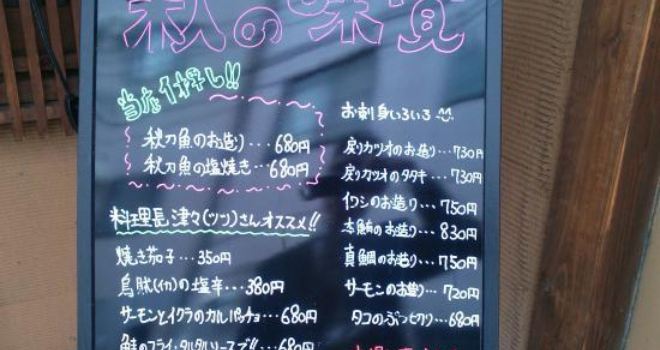 秋の味覚
当店イチ押し!!
秋刀魚のお造り･･･680円
秋刀魚の塩焼き･･･680円
料理長 津々(ツツ)さんオススメ!!
焼き茄子･･･350円
烏賊(イカ)の塩辛･･･380円
サーモンとイクラのカルパッチョ･･･680円
鮭のフライ･タルタルソースで!!･･･680円
お刺身いろいろ
戻りカツオのお造り･･･730円
戻りカツオのタタキ･･･730円
イワシのお造り･･･750円
本鮪のお造り･･･830円
真鯛のお造り･･･750円
サーモンのお造り･･･720円
タコのぶつ切り･･･680円